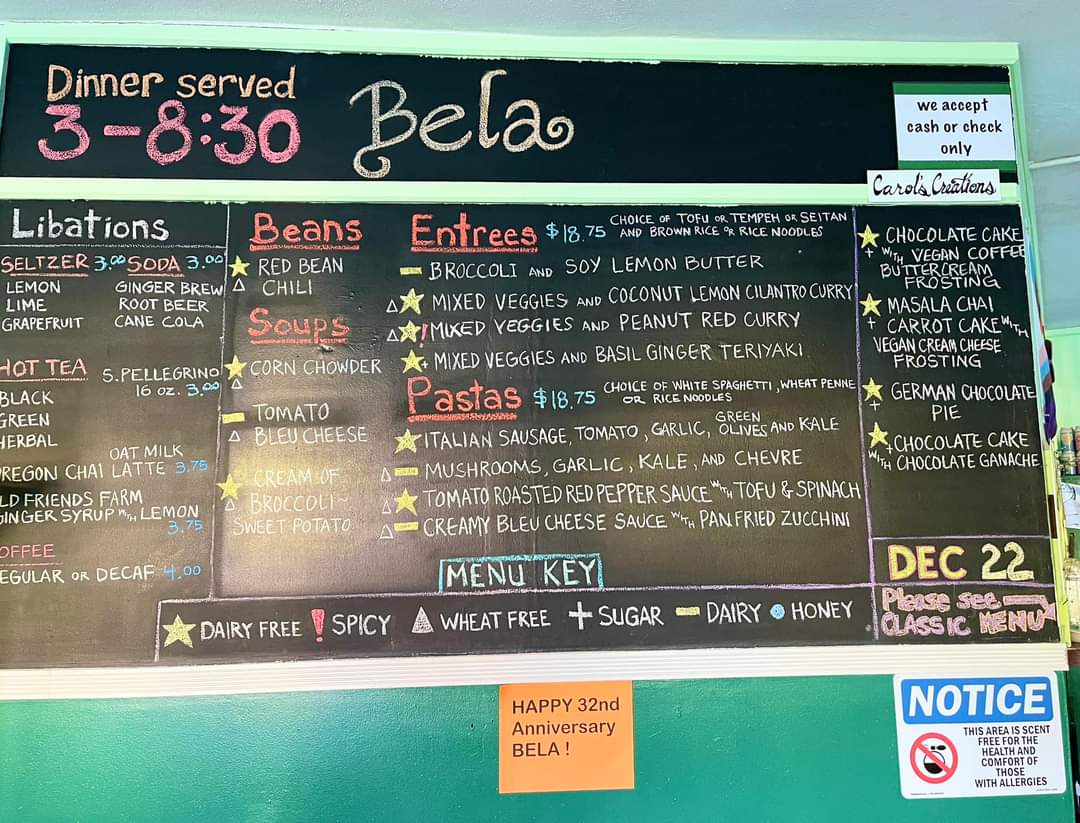 Dinner served
3-8:30
Bela
we accept
cash or check
only
Carol's Creations
Libations
SELTZER 3.00 SODA 3.00
LEMON
LIME
GRAPEFRUIT
GINGER BREW
ROOT BEER
CANE COLA
HOT TEA
S.PELLEGRINO
16 oz. 3.00
BLACK
GREEN
HERBAL
OAT MILK
OREGON CHAI LATTE 3.75
OLD FRIENDS FARM
GINGER SYRUP WITH LEMON
3.75
COFFEE
REGULAR OR DECAF 4.00
Beans
RED BEAN
CHILI
Soups
CORN CHOWDER
TOMATO
BLEU CHEESE
CREAM OF
BROCCOLI~
SWEET POTATO
Entrees $18.75 CHOICE OF TOFU OR TEMPEH OR SEITAN
AND BROWN RICE OR RICE NOODLES
BROCCOLI AND SOY LEMON BUTTER
MIXED VEGGIES AND COCONUT LEMON CILANTRO CURRY
! MIXED VEGGIES AND PEANUT RED CURRY
+ MIXED VEGGIES AND BASIL GINGER TERIYAKI
Pastas $18.75 CHOICE OF WHITE SPAGHETTI, WHEAT PENNE
OR RICE NOODLES
ITALIAN SAUSAGE, TOMATO, GARLIC, GREEN OLIVES AND KALE
MUSHROOMS, GARLIC, KALE, AND CHEVRE
TOMATO ROASTED RED PEPPER SAUCE WITH TOFU & SPINACH
CREAMY BLEU CHEESE SAUCE WITH PAN FRIED ZUCCHINI
CHOCOLATE CAKE
+ WITH VEGAN COFFEE
BUTTERCREAM
FROSTING
MASALA CHAI
+ CARROT CAKE WITH
VEGAN CREAM CHEESE
FROSTING
GERMAN CHOCOLATE
+ PIE
+ CHOCOLATE CAKE
WITH CHOCOLATE GANACHE
DEC 22
Please see
CLASSIC MENU
MENU KEY
DAIRY FREE ! SPICY WHEAT FREE + SUGAR DAIRY HONEY
HAPPY 32nd
Anniversary
BELA !
NOTICE
THIS AREA IS SCENT
FREE FOR THE
HEALTH AND
COMFORT OF
THOSE
WITH ALLERGIES